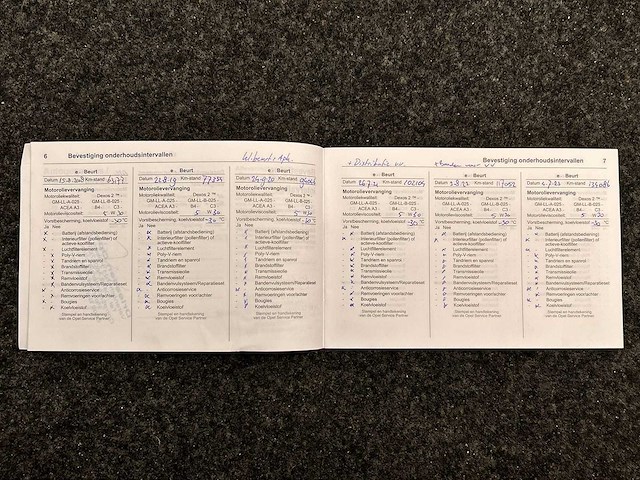 6 Bevestiging onderhoudsintervallen
e - Beurt
Datum 15-8-2018 Km-stand
Motorolievervanging
Motoroliekwaliteit: Dexos 2 ™
GM-LL-A-025 - GM-LL-B-025 -
ACEA A3 - B4 - C3 -
Motorolieviscositeit: 5 W 30
Vorstbescherming, koelvloeistof -30 °C
Ja Nee
Batterij (afstandsbediening)
Interieurfilter (pollenfilter) of
actieve-koolfilter
Luchtfilterelement
Poly V-riem
Tandriem en spanrol
Brandstoffilter
Transmissieolie
Remvloeistof
Bandenvulsysteem/Reparatieset
Antiroeststservice
Remvoeringen voor/achter
Bougies
Koelvloeistof
Stempel en handtekening
van de Opel Service Partner
e - Beurt
Datum 22-8-19 Km-stand 77235
Motorolievervanging
Motoroliekwaliteit: Dexos 2 ™
GM-LL-A-025 - GM-LL-B-025 -
ACEA A3 - B4 - C3 -
Motorolieviscositeit: 5 W 30
Vorstbescherming, koelvloeistof -30 °C
Ja Nee
Batterij (afstandsbediening)
Interieurfilter (pollenfilter) of
actieve-koolfilter
Luchtfilterelement
Poly V-riem
Tandriem en spanrol
Brandstoffilter
Transmissieolie
Remvloeistof
Bandenvulsysteem/Reparatieset
Antiroestservice
Remvoeringen voor/achter
Bougies
Koelvloeistof
Stempel en handtekening
van de Opel Service Partner
e - Beurt
Datum Km-stand
Motorolievervanging
Motoroliekwaliteit: Dexos 2 ™
GM-LL-A-025 - GM-LL-B-025 -
ACEA A3 - B4 - C3
Motorolieviscositeit: 5 W 30
Vorstbescherming, koelvloeistof
Ja Nee
Batterij (afstandsbediening)
Interieurfilter (pollenfilter) of
actieve-koolfilter
Luchtfilterelement
Poly V-riem
Tandriem en spanrol
Brandstoffilter
Transmissieolie
Remvloeistof
Bandenvulsysteem/Reparatieset
Antiroestservice
Remvoeringen voor/achter
Bougies
Koelvloeistof
Stempel en handtekening
van de Opel Service Partner
Bevestiging onderhoudsintervallen 7
+ Distributie
e - Beurt
Datum Km-stand 102104
Motorolievervanging
Motoroliekwaliteit: Dexos 2 ™
GM-LL-A-025 - GM-LL-B-025 -
ACEA A3 - B4 - C3
Motorolieviscositeit: 5 W 30
Vorstbescherming, koelvloeistof -30 °C
Ja Nee
Batterij (afstandsbediening)
Interieurfilter (pollenfilter) of
actieve-koolfilter
Luchtfilterelement
Poly V-riem
Tandriem en spanrol
Brandstoffilter
Transmissieolie
Remvloeistof
Bandenvulsysteem/Reparatieset
Antiroestservice
Remvoeringen voor/achter
Bougies
Koelvloeistof
Stempel en handtekening
van de Opel Service Partner
e - Beurt
Datum Km-stand
Motorolievervanging
Motoroliekwaliteit: Dexos 2 ™
GM-LL-A-025 - GM-LL-B-025 -
ACEA A3 - B4 - C3
Motorolieviscositeit: 5 W 30
Vorstbescherming, koelvloeistof -30 °C
Ja Nee
Batterij (afstandsbediening)
Interieurfilter (pollenfilter) of
actieve-koolfilter
Luchtfilterelement
Poly V-riem
Tandriem en spanrol
Brandstoffilter
Transmissieolie
Remvloeistof
Bandenvulsysteem/Reparatieset
Antiroestservice
Remvoeringen voor/achter
Bougies
Koelvloeistof
Stempel en handtekening
van de Opel Service Partner
e - Beurt
Datum Km-stand
Motorolievervanging
Motoroliekwaliteit: Dexos 2 ™
GM-LL-A-025 - GM-LL-B-025 -
ACEA A3 - B4 - C3
Motorolieviscositeit: 5 W 30
Vorstbescherming, koelvloeistof -30 °C
Ja Nee
Batterij (afstandsbediening)
Interieurfilter (pollenfilter) of
actieve-koolfilter
Luchtfilterelement
Poly V-riem
Tandriem en spanrol
Brandstoffilter
Transmissieolie
Remvloeistof
Bandenvulsysteem/Reparatieset
Antiroestservice
Remvoeringen voor/achter
Bougies
Koelvloeistof
Stempel en handtekening
van de Opel Service Partner